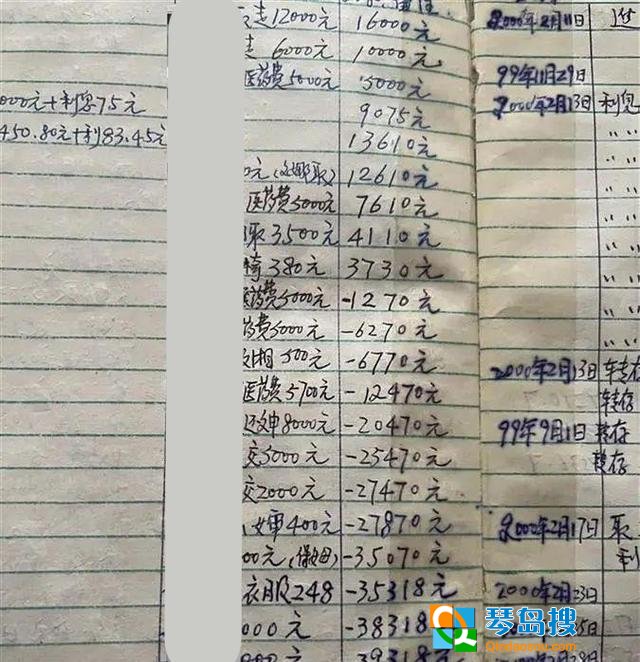 走12000元 16000元 2000年2月11日
走 6000元 10000元
医药费5000元 5000元 99年11月29日
000元+利息75元 9075元 2000年2月13日 利息
450.80元+利83.45元 13610元 〃 〃
0元 12610元 〃 〃
医药费5000元 7610元 〃 〃
取3500元 4110元 〃 〃
380元 3730元 〃 〃
医药费5000元 -1270元 〃 〃
药费5000元 -6270元 〃 〃
500元 -6770元 2000年2月13日 转存
医药费5700元 -12470元 转存
8000元 -20470元 99年9月1日 转存
交5000元 -25470元 转存
交2000元 -27470元
400元 -27870元 2000年2月17日 取
00元(保姆) -35070元 利
衣服248 -35318元 2000年2月23日
000元 -38318
000元 -39318元
琴岛搜